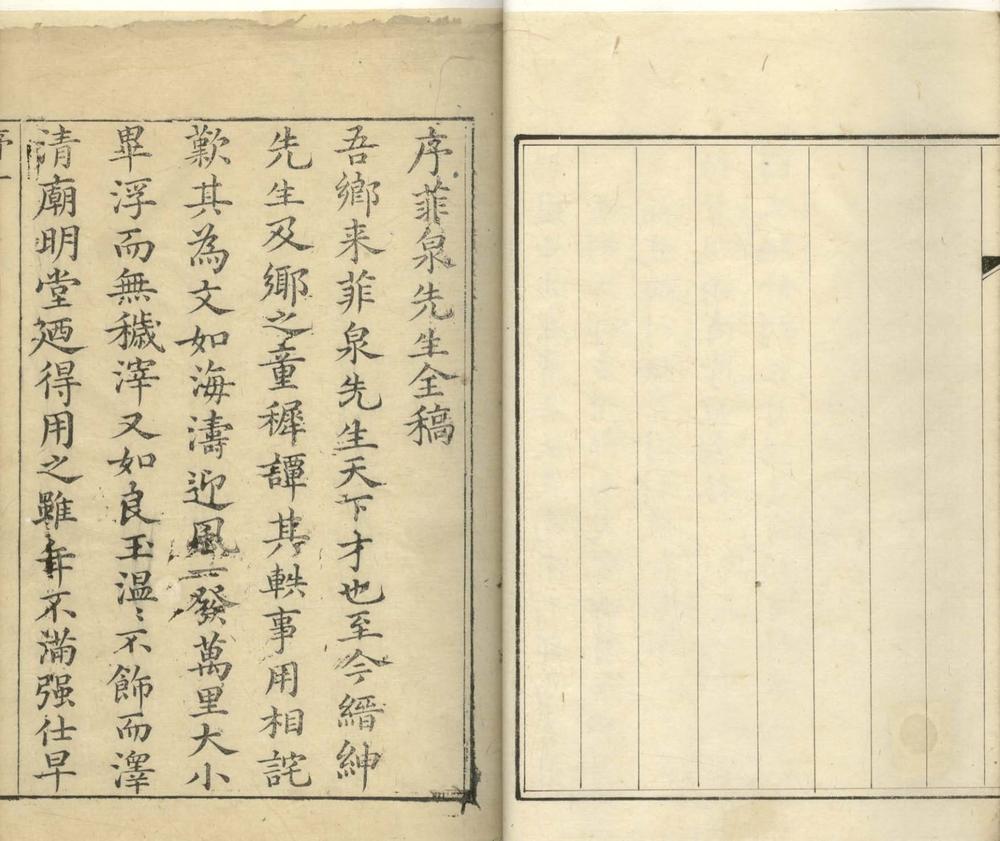 序菲泉先生全稿
吾鄉来菲泉先生天下才也至今縉紳
先生及鄉之童穉譚其軼事用相詫
歎其為文如海濤迎風一發萬里大小
畢浮而無穢滓又如良玉温〻不飾而澤
清廟明堂廼得用之雖年不滿强仕早
序一